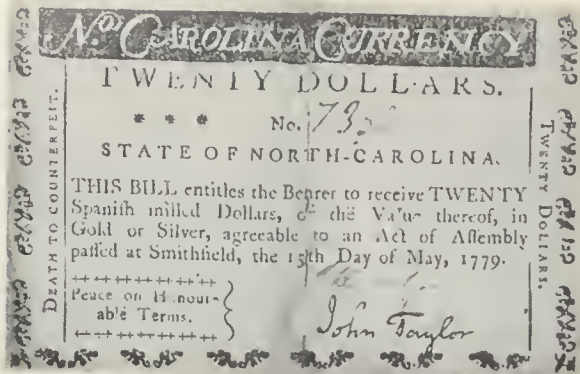 No. CAROLINA CURRENCY
TWENTY DOLLARS.
* * * No. 73
STATE OF NORTH-CAROLINA.
THIS BILL entitles the Bearer to receive TWENTY
Spaniſh milled Dollars, or the Value thereof, in
Gold or Silver, agreeable to an Act of Aſſembly
paſſed at Smithfield, the 15th Day of May, 1779.
Peace on Honour-
able Terms.
John Taylor
DEATH TO COUNTERFEIT.
TWENTY DOLLARS.